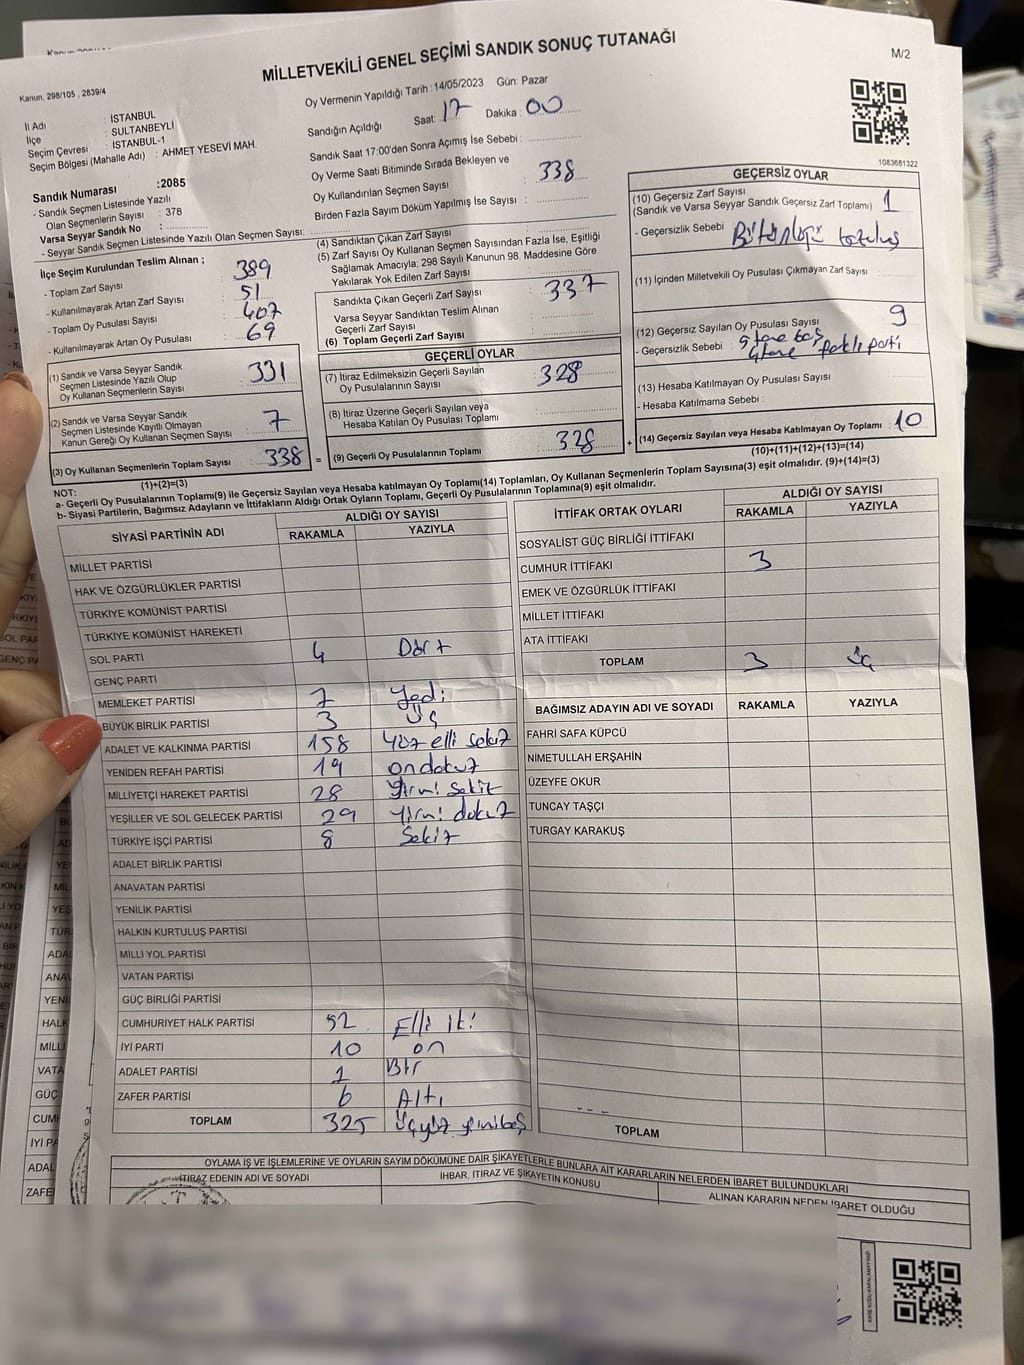 MİLLETVEKİLİ GENEL SEÇİMİ SANDIK SONUÇ TUTANAĞI
M/2
Kanun, 298/105 , 2839/4
İl Adı : İSTANBUL
İlçe : SULTANBEYLİ
Seçim Çevresi : İSTANBUL-1
Seçim Bölgesi (Mahalle Adı) : AHMET YESEVİ MAH.
Sandık Numarası :2085
- Sandık Seçmen Listesinde Yazılı
Olan Seçmenlerin Sayısı : 378
Varsa Seyyar Sandık No :
- Seyyar Sandık Seçmen Listesinde Yazılı Olan Seçmen Sayısı:
Oy Vermenin Yapıldığı Tarih : 14/05/2023 Gün: Pazar
Sandığın Açıldığı Saat: 17 Dakika : 00
Sandık Saat 17:00'den Sonra Açımış İse Sebebi :
Oy Verme Saati Bitiminde Sırada Bekleyen ve
Oy Kullandırılan Seçmen Sayısı :
Birden Fazla Sayım Döküm Yapılmış İse Sayısı :
338
1083681322
İlçe Seçim Kurulundan Teslim Alınan ;
- Toplam Zarf Sayısı : 389
- Kullanılmayarak Artan Zarf Sayısı : 51
- Toplam Oy Pusulası Sayısı : 407
- Kullanılmayarak Artan Oy Pusulası : 69
(1) Sandık ve Varsa Seyyar Sandık
Seçmen Listesinde Yazılı Olup
Oy Kullanan Seçmenlerin Sayısı : 331
(2) Sandık ve Varsa Seyyar Sandık
Seçmen Listesinde Kayıtlı Olmayan
Kanun Gereği Oy Kullanan Seçmen Sayısı : 7
(3) Oy Kullanan Seçmenlerin Toplam Sayısı : 338 =
(1)+(2)=(3)
(4) Sandıktan Çıkan Zarf Sayısı
(5) Zarf Sayısı Oy Kullanan Seçmen Sayısından Fazla İse, Eşitliği
Sağlamak Amacıyla; 298 Sayılı Kanunun 98. Maddesine Göre
Yakılarak Yok Edilen Zarf Sayısı :
Sandıkta Çıkan Geçerli Zarf Sayısı : 337
Varsa Seyyar Sandıktan Teslim Alınan
Geçerli Zarf Sayısı :
(6) Toplam Geçerli Zarf Sayısı :
GEÇERLİ OYLAR
(7) İtiraz Edilmeksizin Geçerli Sayılan
Oy Pusulalarının Sayısı : 328
(8) İtiraz Üzerine Geçerli Sayılan veya
Hesaba Katılan Oy Pusulası Toplamı :
(9) Geçerli Oy Pusulalarının Toplamı : 328 +
GEÇERSİZ OYLAR
(10) Geçersiz Zarf Sayısı
(Sandık ve Varsa Seyyar Sandık Geçersiz Zarf Toplamı) : 1
- Geçersizlik Sebebi :
(11) İçinden Milletvekili Oy Pusulası Çıkmayan Zarf Sayısı :
(12) Geçersiz Sayılan Oy Pusulası Sayısı : 9
- Geçersizlik Sebebi : 5 tane boş
4 tane farklı parti
(13) Hesaba Katılmayan Oy Pusulası Sayısı :
- Hesaba Katılmama Sebebi :
(14) Geçersiz Sayılan veya Hesaba Katılmayan Oy Toplamı : 10
(10)+(11)+(12)+(13)=(14)
NOT:
a- Geçerli Oy Pusulalarının Toplamı(9) ile Geçersiz Sayılan veya Hesaba Katılmayan Oy Toplamı(14) Toplamları, Oy Kullanan Seçmenlerin Toplam Sayısına(3) eşit olmalıdır. (9)+(14)=(3)
b- Siyasi Partilerin, Bağımsız Adayların ve İttifakların Aldığı Ortak Oyların Toplamı, Geçerli Oy Pusulalarının Toplamına(9) eşit olmalıdır.
SİYASİ PARTİNİN ADI
ALDIĞI OY SAYISI
RAKAMLA YAZIYLA
MİLLET PARTİSİ
HAK VE ÖZGÜRLÜKLER PARTİSİ
TÜRKİYE KOMÜNİST PARTİSİ
TÜRKİYE KOMÜNİST HAREKETİ
SOL PARTİ 4 Dört
GENÇ PARTİ
MEMLEKET PARTİSİ 7 Yedi
BÜYÜK BİRLİK PARTİSİ 3 Üç
ADALET VE KALKINMA PARTİSİ 158 Yüz elli sekiz
YENİDEN REFAH PARTİSİ 19 ondokuz
MİLLİYETÇİ HAREKET PARTİSİ 28 Yirmi sekiz
YEŞİLLER VE SOL GELECEK PARTİSİ 29 Yirmi dokuz
TÜRKİYE İŞÇİ PARTİSİ 8 Sekiz
ADALET BİRLİK PARTİSİ
ANAVATAN PARTİSİ
YENİLİK PARTİSİ
HALKIN KURTULUŞ PARTİSİ
MİLLİ YOL PARTİSİ
VATAN PARTİSİ
GÜÇ BİRLİĞİ PARTİSİ
CUMHURİYET HALK PARTİSİ 52 Elli iki
İYİ PARTİ 10 on
ADALET PARTİSİ 1 Bir
ZAFER PARTİSİ 6 Altı
TOPLAM 325 Üçyüz yirmibeş
İTTİFAK ORTAK OYLARI
ALDIĞI OY SAYISI
RAKAMLA YAZIYLA
SOSYALİST GÜÇ BİRLİĞİ İTTİFAKI
CUMHUR İTTİFAKI 3
EMEK VE ÖZGÜRLÜK İTTİFAKI
MİLLET İTTİFAKI
ATA İTTİFAKI
TOPLAM 3 Üç
BAĞIMSIZ ADAYIN ADI VE SOYADI RAKAMLA YAZIYLA
FAHRİ SAFA KÜPCÜ
NİMETULLAH ERŞAHİN
ÜZEYFE OKUR
TUNCAY TAŞÇI
TURGAY KARAKUŞ
TOPLAM
OYLAMA İŞ VE İŞLEMLERİNE VE OYLARIN SAYIM DÖKÜMÜNE DAİR ŞİKAYETLERLE BUNLARA AİT KARARLARIN NELERDEN İBARET BULUNDUKLARI
İTİRAZ EDENİN ADI VE SOYADI
İHBAR, İTİRAZ VE ŞİKAYETİN KONUSU
ALINAN KARARIN NEDEN İBARET OLDUĞU